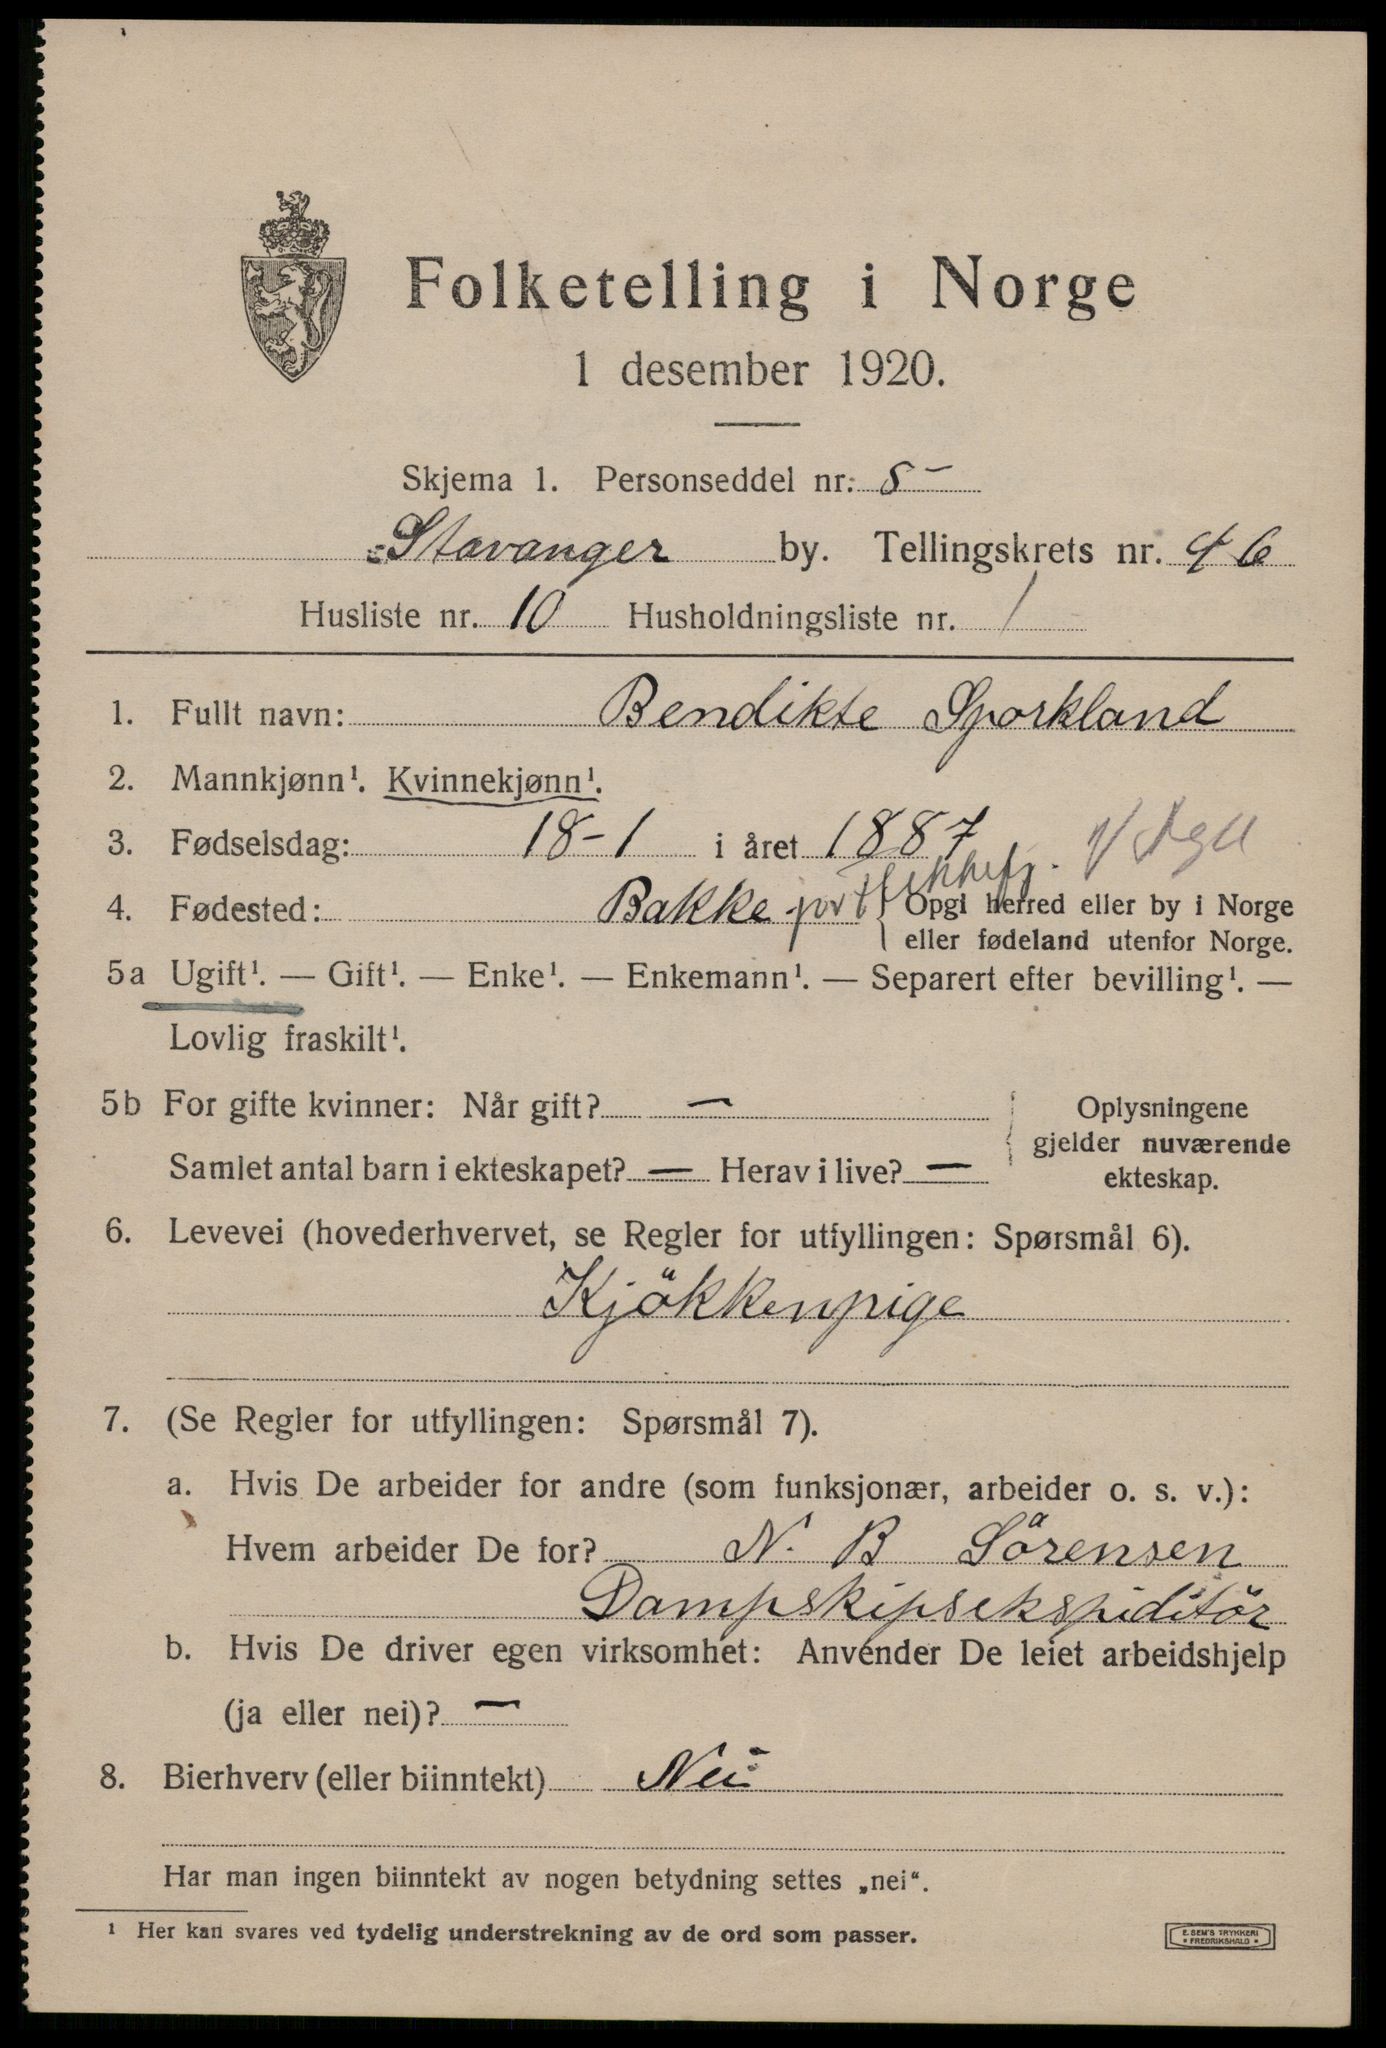 Folketelling i Norge
1 desember 1920.
Skjema 1. Personseddel nr. 5
Stavanger by. Tellingskrets nr. 46
Husliste nr. 10 Husholdningsliste nr. 1
1. Fullt navn: Bendikte Sporkland
2. Mannkjønn¹. Kvinnekjønn¹.
3. Fødselsdag: 18-1 i året 1887
4. Fødested: Bakke Opgi herred eller by i Norge
eller fødeland utenfor Norge.
5a Ugift¹. — Gift¹. — Enke¹. — Enkemann¹. — Separert efter bevilling¹. —
Lovlig fraskilt¹.
5b For gifte kvinner: Når gift? —
Samlet antal barn i ekteskapet? — Herav i live? —
Oplysningene
gjelder nuværende
ekteskap.
6. Levevei (hovederhvervet, se Regler for utfyllingen: Spørsmål 6).
Kjökkenpige
7. (Se Regler for utfyllingen: Spørsmål 7).
a. Hvis De arbeider for andre (som funksjonær, arbeider o. s. v.):
Hvem arbeider De for? N. B Sörensen
Dampskipsekspiditör
b. Hvis De driver egen virksomhet: Anvender De leiet arbeidshjelp
(ja eller nei)? —
8. Bierhverv (eller biinntekt) Nei
Har man ingen biinntekt av nogen betydning settes „nei“.
¹ Her kan svares ved tydelig understrekning av de ord som passer.
E. SEM'S TRYKKERI
FREDRIKSHALD